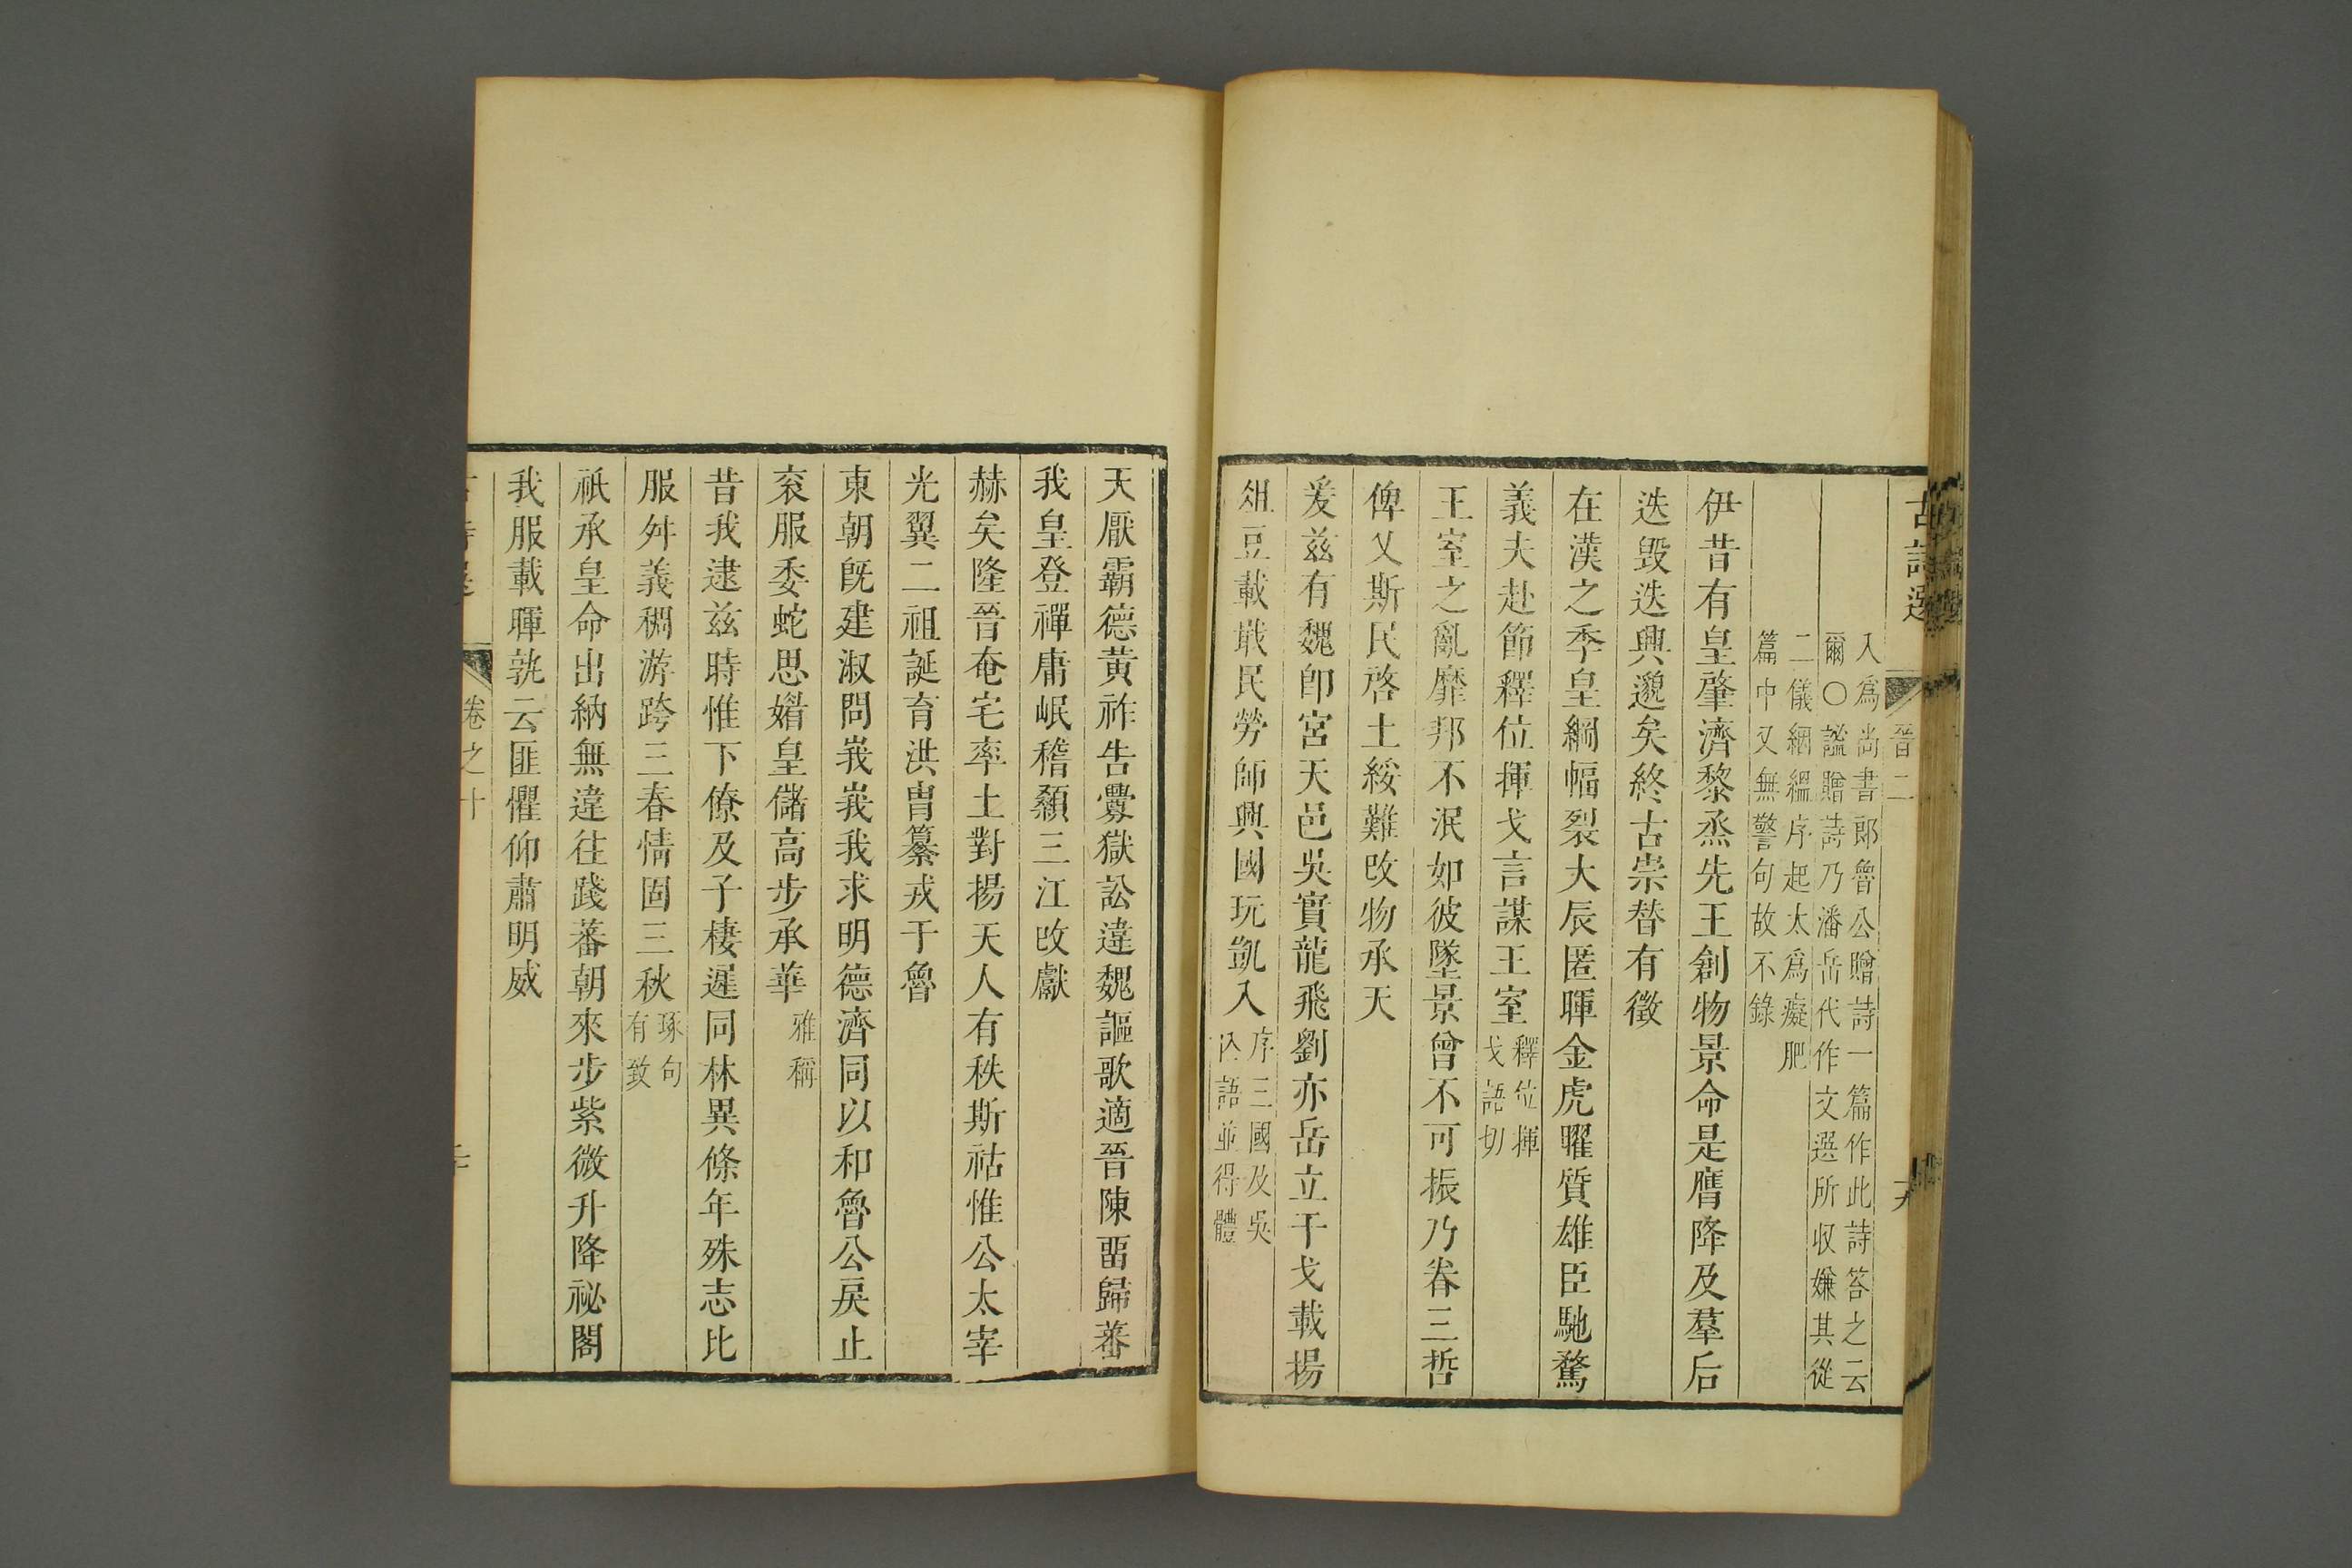 古詩選
晉二
入爲尚書郎魯公贈詩一篇作此詩答之云
爾〇謐贈詩乃潘岳代作文選所収嫌其從
二儀絪縕序起太爲癡肥
篇中又無警句故不錄
伊昔有皇肇濟黎烝先王創物景命是膺降及羣后
迭毀迭興邈矣終古崇替有徵
在漢之季皇綱幅裂大辰匿暉金虎曜質雄臣馳騖
義夫赴節釋位揮戈言謀王室
釋位揮
戈語切
王室之亂靡邦不泯如彼墜景曾不可振乃眷三哲
俾乂斯民啓土綏難改物承天
爰茲有魏卽宮天邑吳實龍飛劉亦岳立干戈載揚
俎豆載戢民勞師興國玩凱入
序三國及吳
入語並得體
天厭霸德黃祚告釁獄訟違魏謳歌適晉陳畱歸蕃
我皇登禪庸岷稽顙三江改獻
赫矣隆晉奄宅率土對揚天人有秩斯祜惟公太宰
光翼二祖誕育洪胄纂戎于魯
東朝旣建淑問峩峩我求明德濟同以和魯公戾止
衮服委蛇思媚皇儲高步承華
雅稱
昔我逮茲時惟下僚及子棲遲同林異條年殊志比
服舛義稠游跨三春情固三秋
琢句
有致
祇承皇命出納無違往踐蕃朝來步紫微升降祕閣
我服載暉孰云匪懼仰肅明威
卷之十